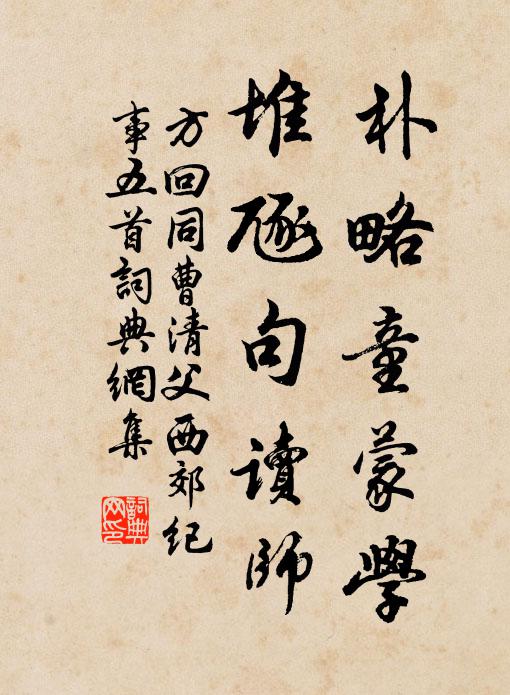 朴略童蒙學
堆豗句讀師
方回同曹清父西郊紀
事五首詞典網集
詞典網印